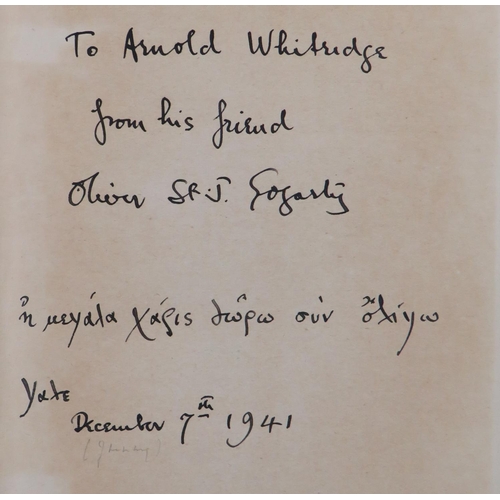 To Arnold Whitridge
from his friend
Oliver St. J. Gogarty
ἢ μεγάλα χάρις δώρῳ σὺν ὀλίγω
Yale
December 7th 1941